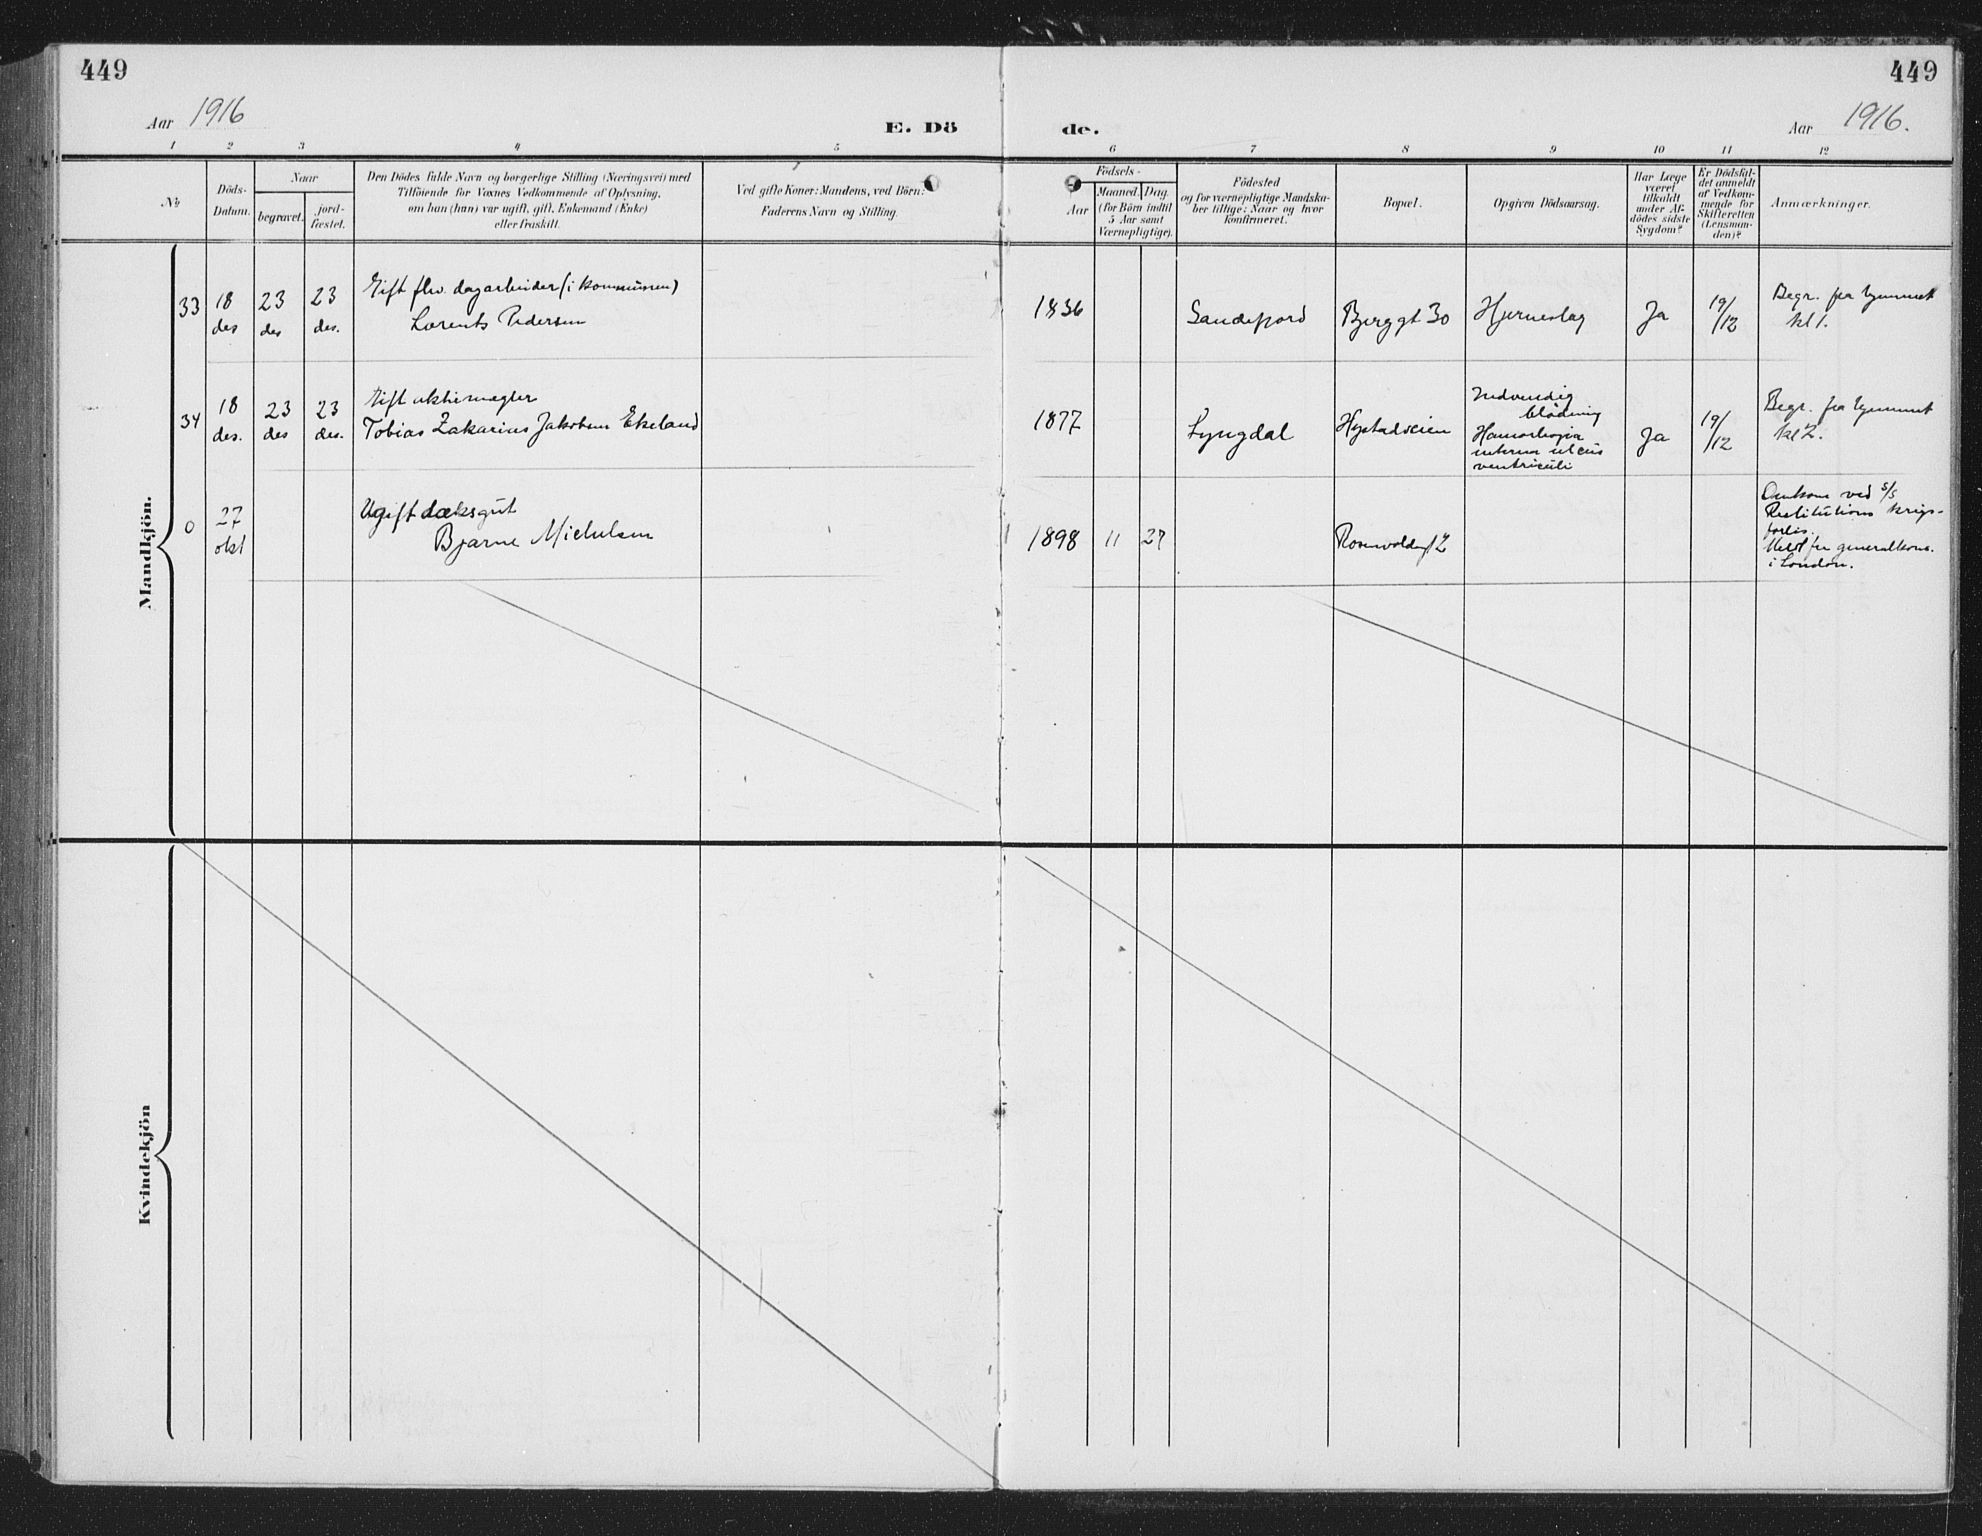 449
449
Aar 1916
E. Dö
de.
Aar 1916.
1 2 3 4 5 6 7 8 9 10 11 12
No
Döds-
Datum.
Naar
begravet.
jord-
fæstet.
Den Dödes fulde Navn og borgerlige Stilling (Næringsvei) med
Tilföiende for Voxnes Vedkommende af Oplysning,
om han (hun) var ugift, gift, Enkemand (Enke)
eller fraskilt.
Ved gifte Koner: Mandens, ved Börn:
Faderens Navn og Stilling.
Födsels-
Aar
Maaned.
Dag.
(for Börn indtil
5 Aar samt
Værnepligtige).
Födested
og for værnepligtige Mandska-
ber tillige: Naar og hvor
konfirmeret.
Bopæl.
Opgiven Dödsaarsag.
Har Læge
været
tilkaldt
under Af-
dödes sidste
Sygdom?
Er Dödsfal-
det anmeldt
af Vedkom-
mende for
Skifteretten
(Lensman-
den)?
Anmærkninger.
Mandkjön.
33
18
des
23
des
23
des.
Gift flv. dagarbeider (i kommunen)
Lorents Pedersen
1836
Sandefjord
Bjerggt 30
Hjerneslag
Ja
19/12
Begr. fra hjemmet
kl 1.
34
18
des.
23
des
23
des.
Gift aktiemægler
Tobias Zakarius Jakobsen Ekeland
1877
Lyngdal
Hystadveien
Indvendig
blødning
interna ulcus
ventriculi
Ja
19/12
Begr. fra hjemmet
kl 2.
0
27
okt
Ugift dæksgut
Bjarne Michelsen
1898 11 27
Omkom ved s/s
Restitutions krigs-
forlis.
Meldt fra generalkons.
i London.
Kvindekjön